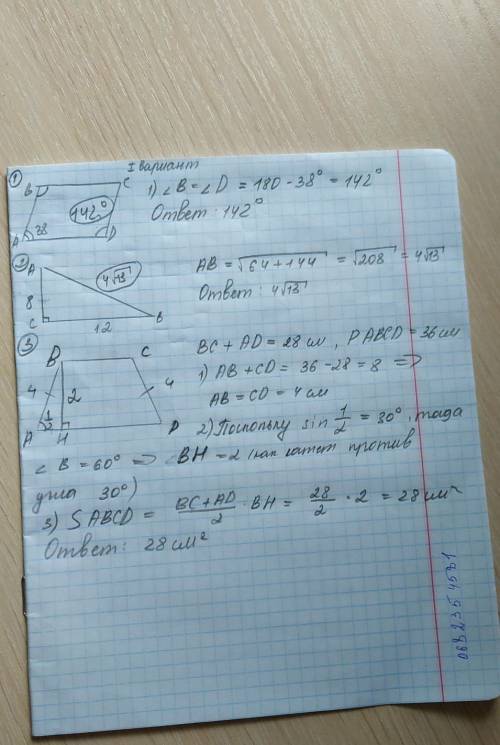 I вариант
① B C
1) ∠B = ∠D = 180 - 38° = 142°
142°
Ответ: 142°
A 38 D
② A
4√13
AB = √64+144 = √208 = 4√13
8
Ответ: 4√13
C 12 B
③ B C
BC + AD = 28 см, P ABCD = 36 см
1) AB + CD = 36 - 28 = 8 =>
4 2 4
AB = CD = 4 см
1/2
A H D
2) Поскольку sin 1/2 = 30°, тогда
∠B = 60° => BH = 2 (как катет против
угла 30°)
3) SABCD = BC+AD/2 · BH = 28/2 · 2 = 28 см²
Ответ: 28 см²